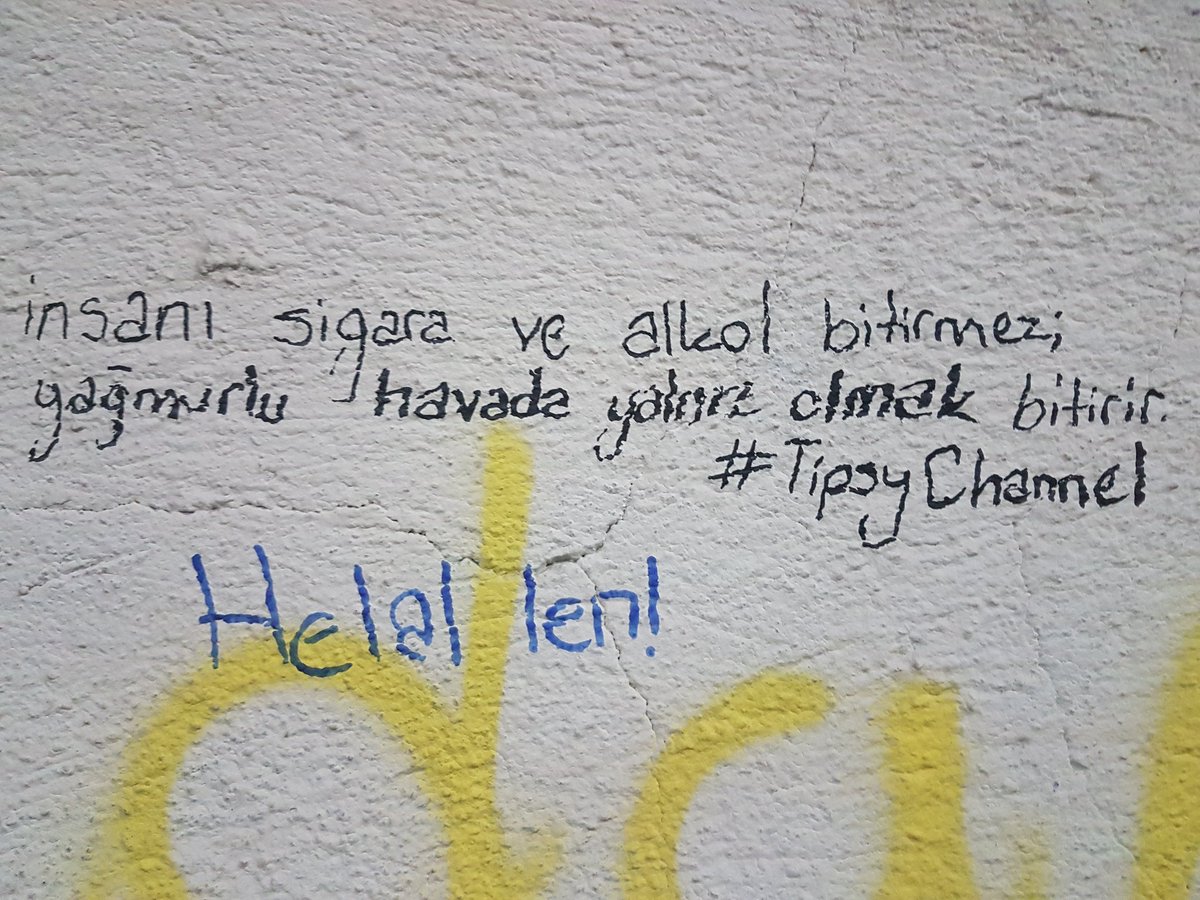 insanı sigara ve alkol bitirmez;
yağmurlu havada yalnız olmak bitirir.
#TipsyChannel
Helal len!